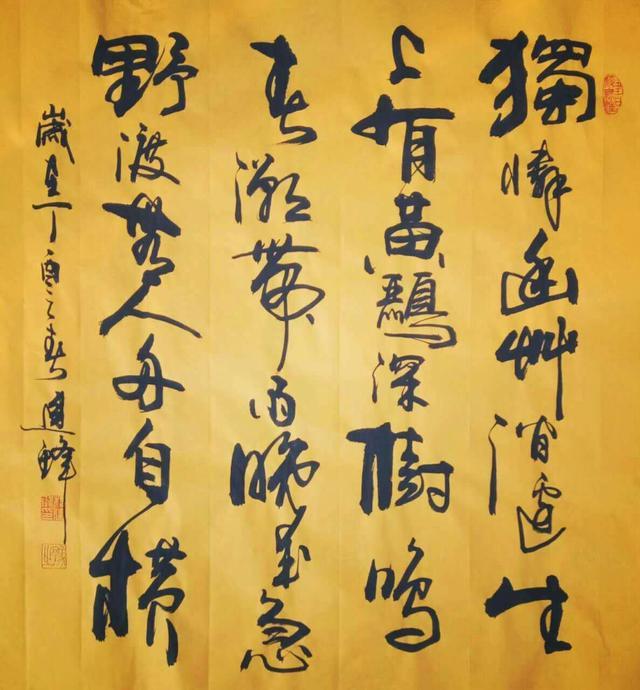 獨憐幽艸澗邊生
上有黃鸝深樹鳴
春潮帶雨晚來急
野渡無人舟自橫
歲在丁酉之春建鋒